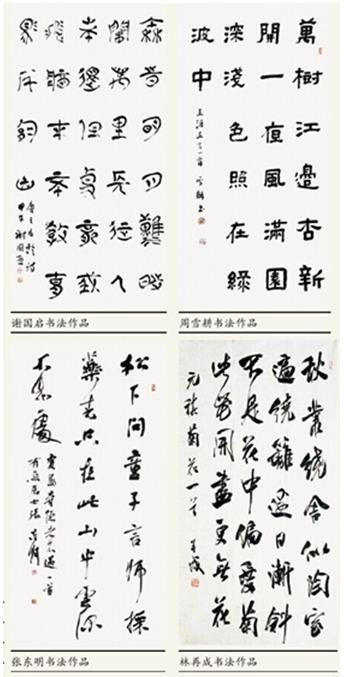 秦時明月漢時
關萬里長征人
未還但使龍城
飛將在不教胡
馬度陰山
唐王昌齡詩
謝国启书法作品
萬樹江邊杏新
開一夜風滿園
深淺色照在綠
波中
王涯五言一首 雪耕書
周雪耕书法作品
松下問童子言師採
藥去只在此山中雲深
不知處
賈島尋隱者不遇一首
張東明
张东明书法作品
秋叢繞舍似陶家
遍繞籬邊日漸斜
不是花中偏愛菊
此花開盡更無花
元稹菊花一首 再成
林再成书法作品